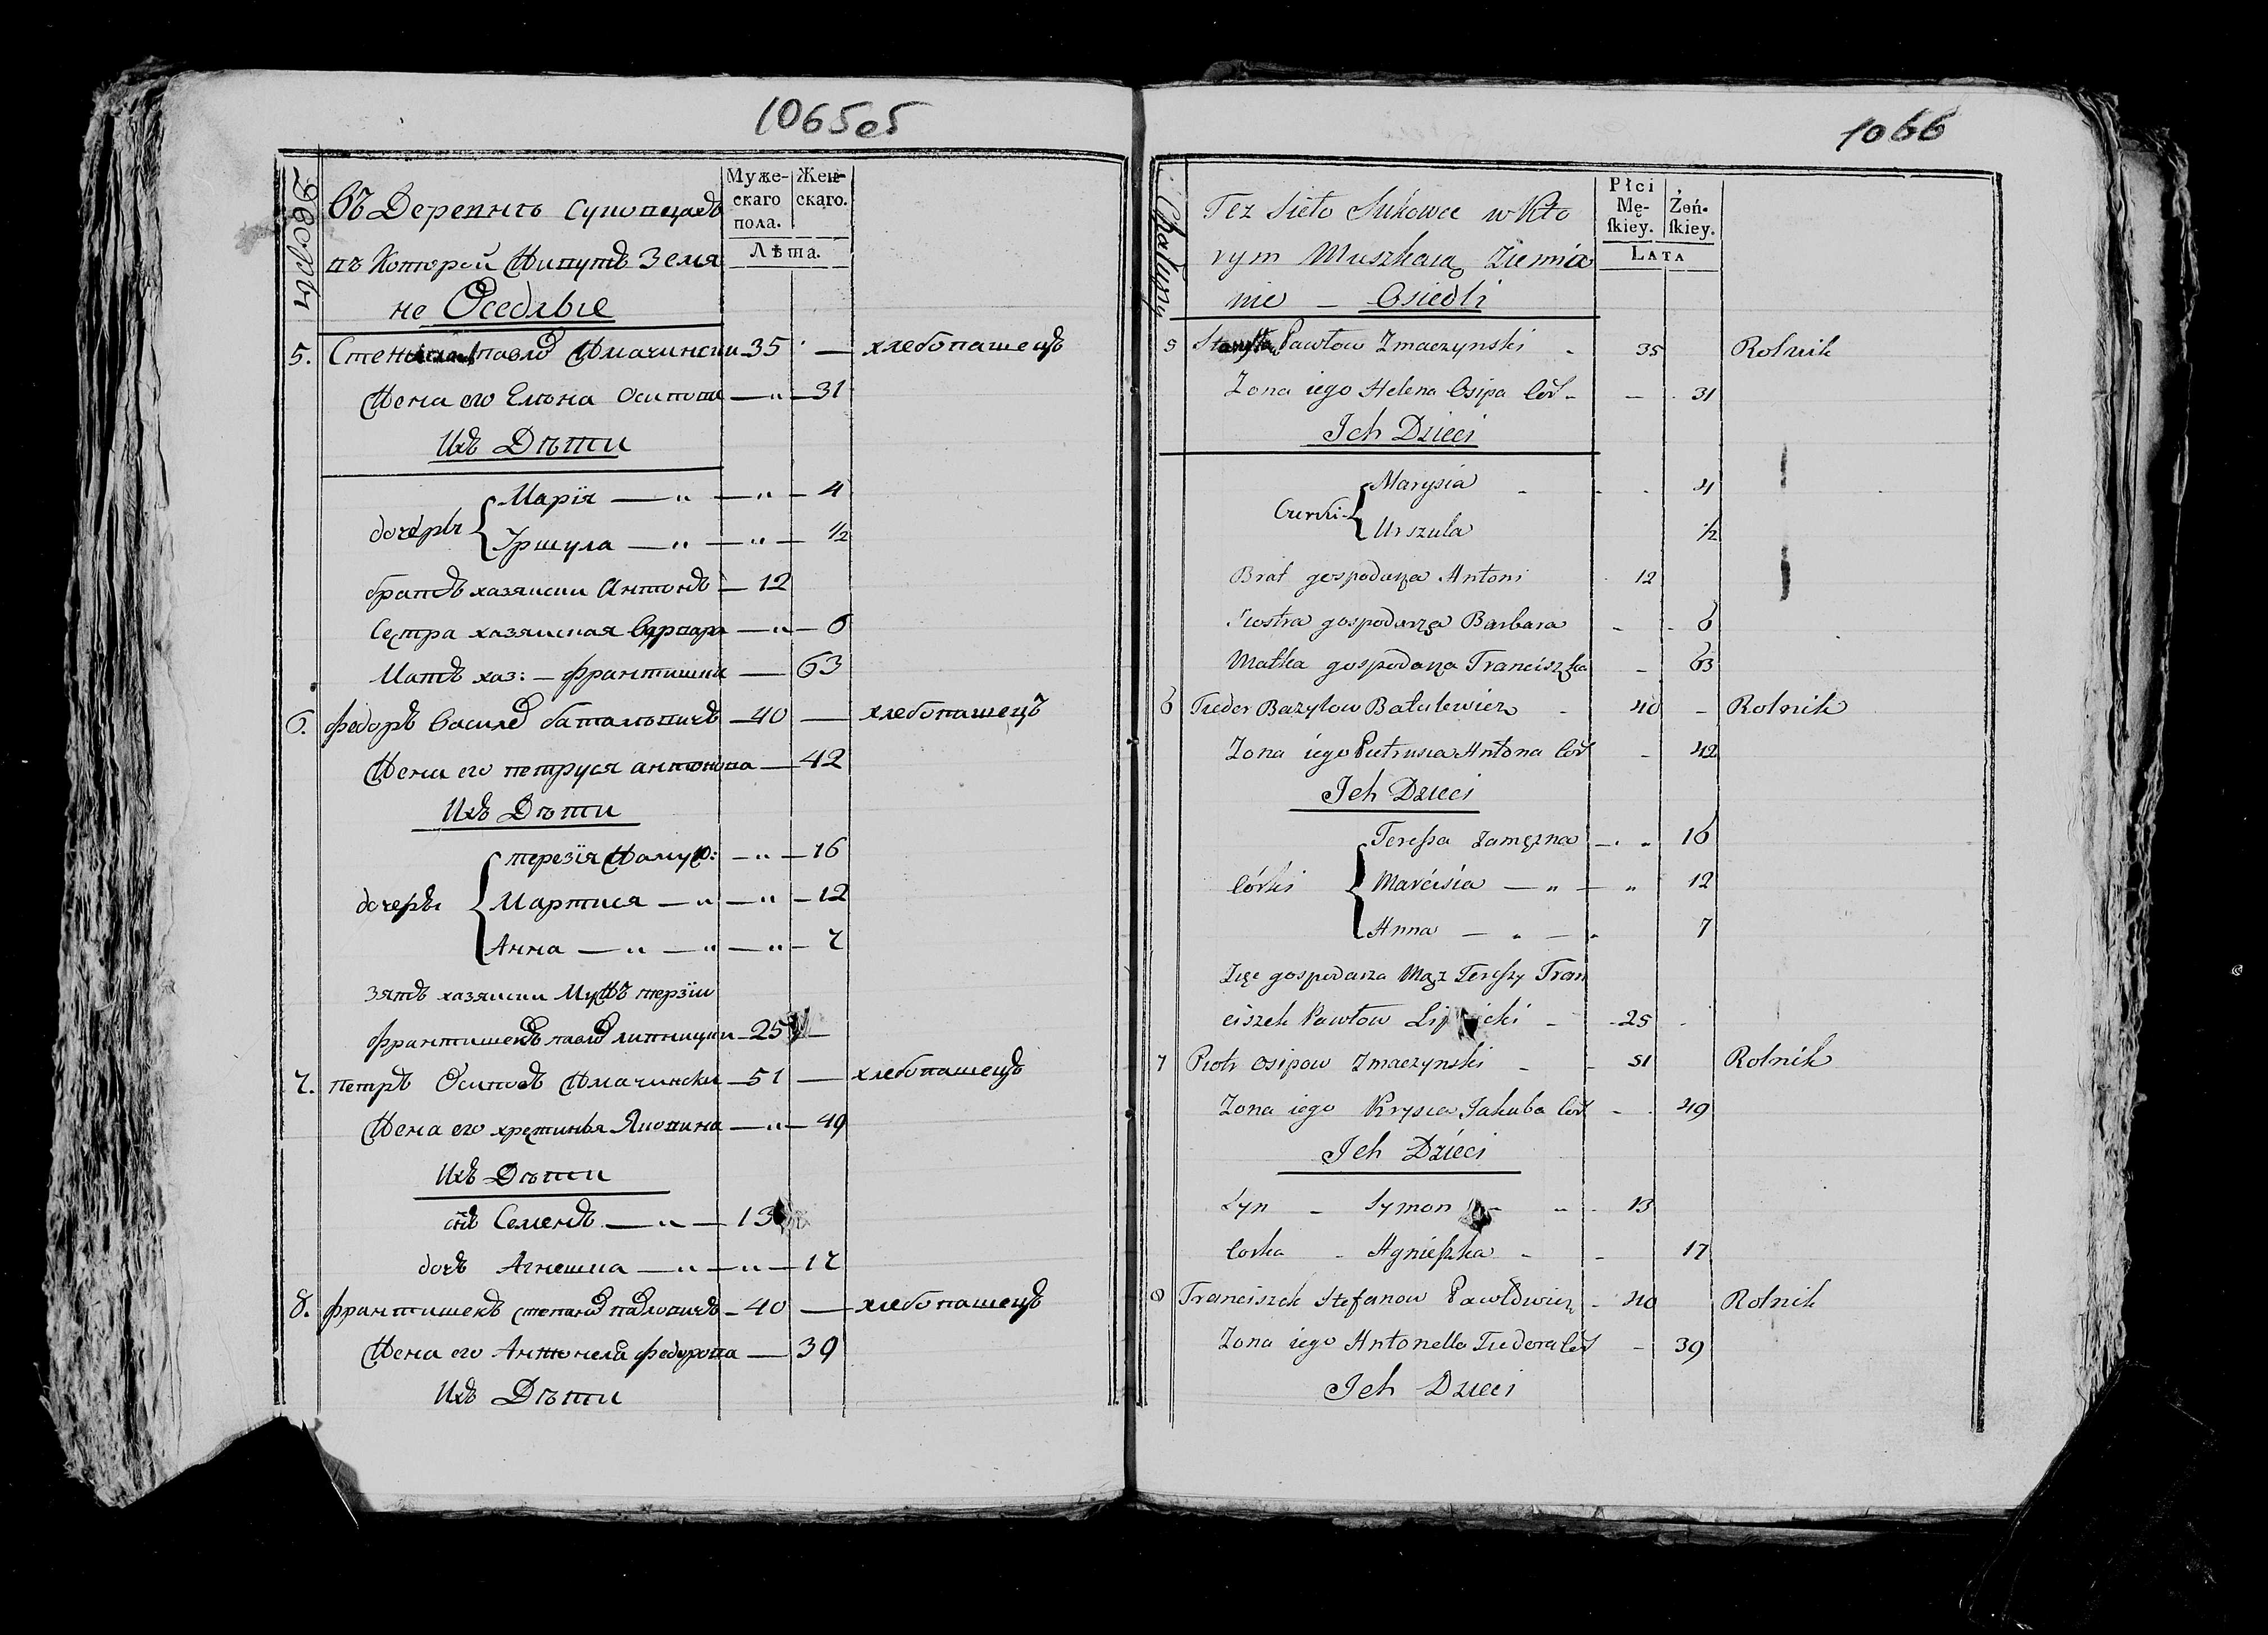 1065об
Дворы
Въ Деревнѣ Суковцахъ
въ Которой Живутъ Земя
не Оседлые
Муже-
скаго
пола.
Жен-
скаго.
Лѣта.
5. Павло Жмачински 35 — хлебопашецъ
Жена его Елена Осипова — 31
Ихъ Дѣти
дочеры
Марія — 4
Уршула — ½
братъ хазяиски Антонъ — 12
Сестра хазяиская Варвара — 6
Мать хаз: — францишка — 63
6. федоръ Василев баталевичъ — 40 — хлебопашецъ
Жена его петруся антонова — 42
Ихъ Дѣти
дочеры
терезія Замуж: — 16
Мартися — 12
Анна — 7
зять хазяиски Мужъ терзіи
францишекъ павлов липницки — 25 —
7. петръ Осиповъ Жмачински — 51 — хлебопашецъ
Жена его хрестинья Якопина — 49
Ихъ Дѣти
снъ Семенъ — 13
дочъ Агнешка — 17
8. францишекъ степанов павловичъ — 40 — хлебопашецъ
Жена его Антонеля федорова — 39
Ихъ Дѣти
1066
Chałupy
Tez Sieło Sukowce w Kto
rym Muszkaią Ziemia
nie — Osiedli
Płci
Mę-
skiey.
Żeń-
skiey.
LATA
5 Pawłow Zmaczynski 35 Rolnik
Zona iego Helena Osipa Cor - — 31
Ich Dzieci
Curki
Marysia 4
Urszula ½
Brat gospodarza Antoni 12
Siostra gospodarza Barbara - 6
Matka gospodarza Franciszka - 63
6 Fiedor Bazylow Batulewicz - 40 - Rolnik
Zona iego Pietrusia Antona Cor - 42
Ich Dzieci
Córki
Teressa zamęzna — 16
Marcisia — 12
Anna — 7
Zięc gospodarza Mąz Teressy Fran
ciszek Pawłow - 25
7 Piotr Osipow Zmaczynski - 51 Rolnik
Zona iego Krysia Jakuba Cor - 49
Ich Dzieci
Syn - Symon - 13
Corka - Agnieszka - 17
8 Franciszek Stefanow Pawłowicz - 40 Rolnik
Zona iego Antonella Fiedora Cor - 39
Ich Dzieci